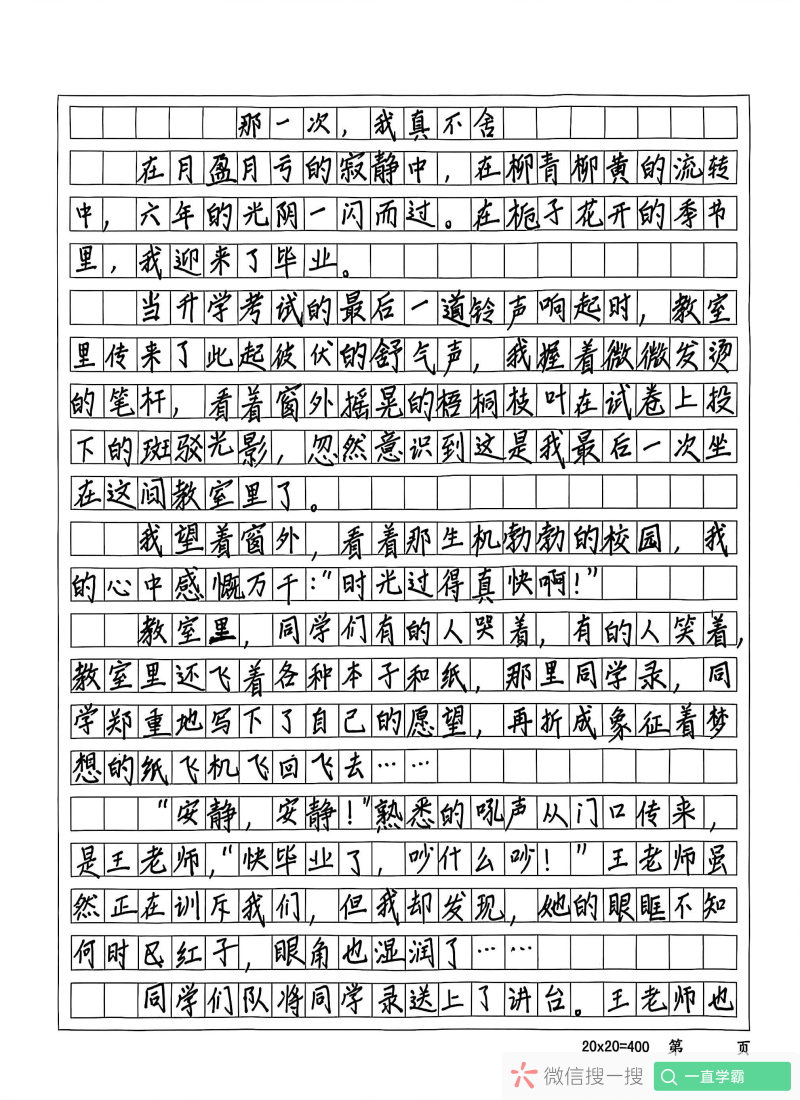 那一次，我真不舍
在月盈月亏的寂静中，在柳青柳黄的流转
中，六年的光阴一闪而过。在栀子花开的季节
里，我迎来了毕业。
当升学考试的最后一道铃声响起时，教室
里传来了此起彼伏的舒气声，我握着微微发烫
的笔杆，看着窗外摇晃的梧桐枝叶在试卷上投
下的斑驳光影，忽然意识到这是我最后一次坐
在这间教室里了。
我望着窗外，看着那生机勃勃的校园，我
的心中感慨万千：“时光过得真快啊！”
教室里，同学们有的人哭着，有的人笑着，
教室里还飞着各种本子和纸，那里同学录，同
学郑重地写下了自己的愿望，再折成象征着梦
想的纸飞机飞回飞去……
“安静，安静！”熟悉的吼声从门口传来，
是王老师，“快毕业了，吵什么吵！”王老师虽
然正在训斥我们，但我却发现，她的眼眶不知
何时已红了，眼角也湿润了……
同学们队将同学录送上了讲台。王老师也
20×20=400 第 页
微信搜一搜 一直学霸